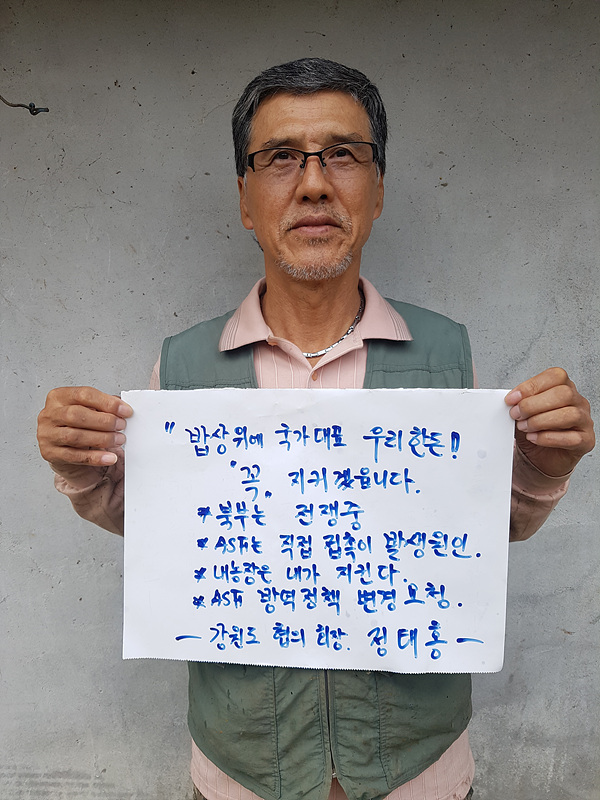 " 밥상위에 국가대표 우리한돈!!
"꼭" 지키겠읍니다.
* 북부는 전쟁중
* ASF는 직접 접촉이 발생원인.
* 내농장은 내가 지킨다.
* ASF 방역정책 변경 요청.
- 강원도 협의회장. 정태홍 -